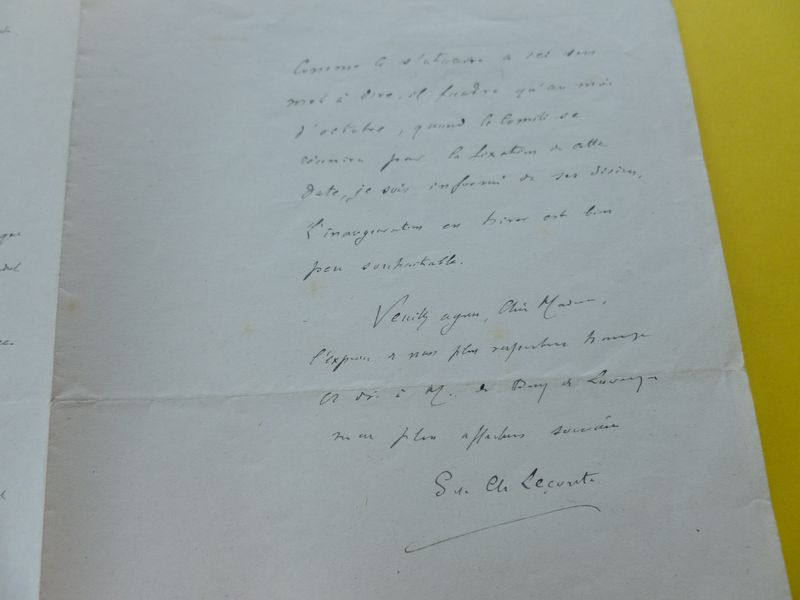 Comme le statuaire a ici son
mot à dire, il faudra qu'au mois
d'octobre, quand le Comité se
réunira pour la fixation de cette
date, je sois informé de ses désirs.
L'inauguration en hiver est bien
peu souhaitable.
Veuillez agréer, Chère Madame,
l'expression de mes plus respectueux hommages
et dire à M. de de
mon plus affectueux souvenir
Ch Leconte